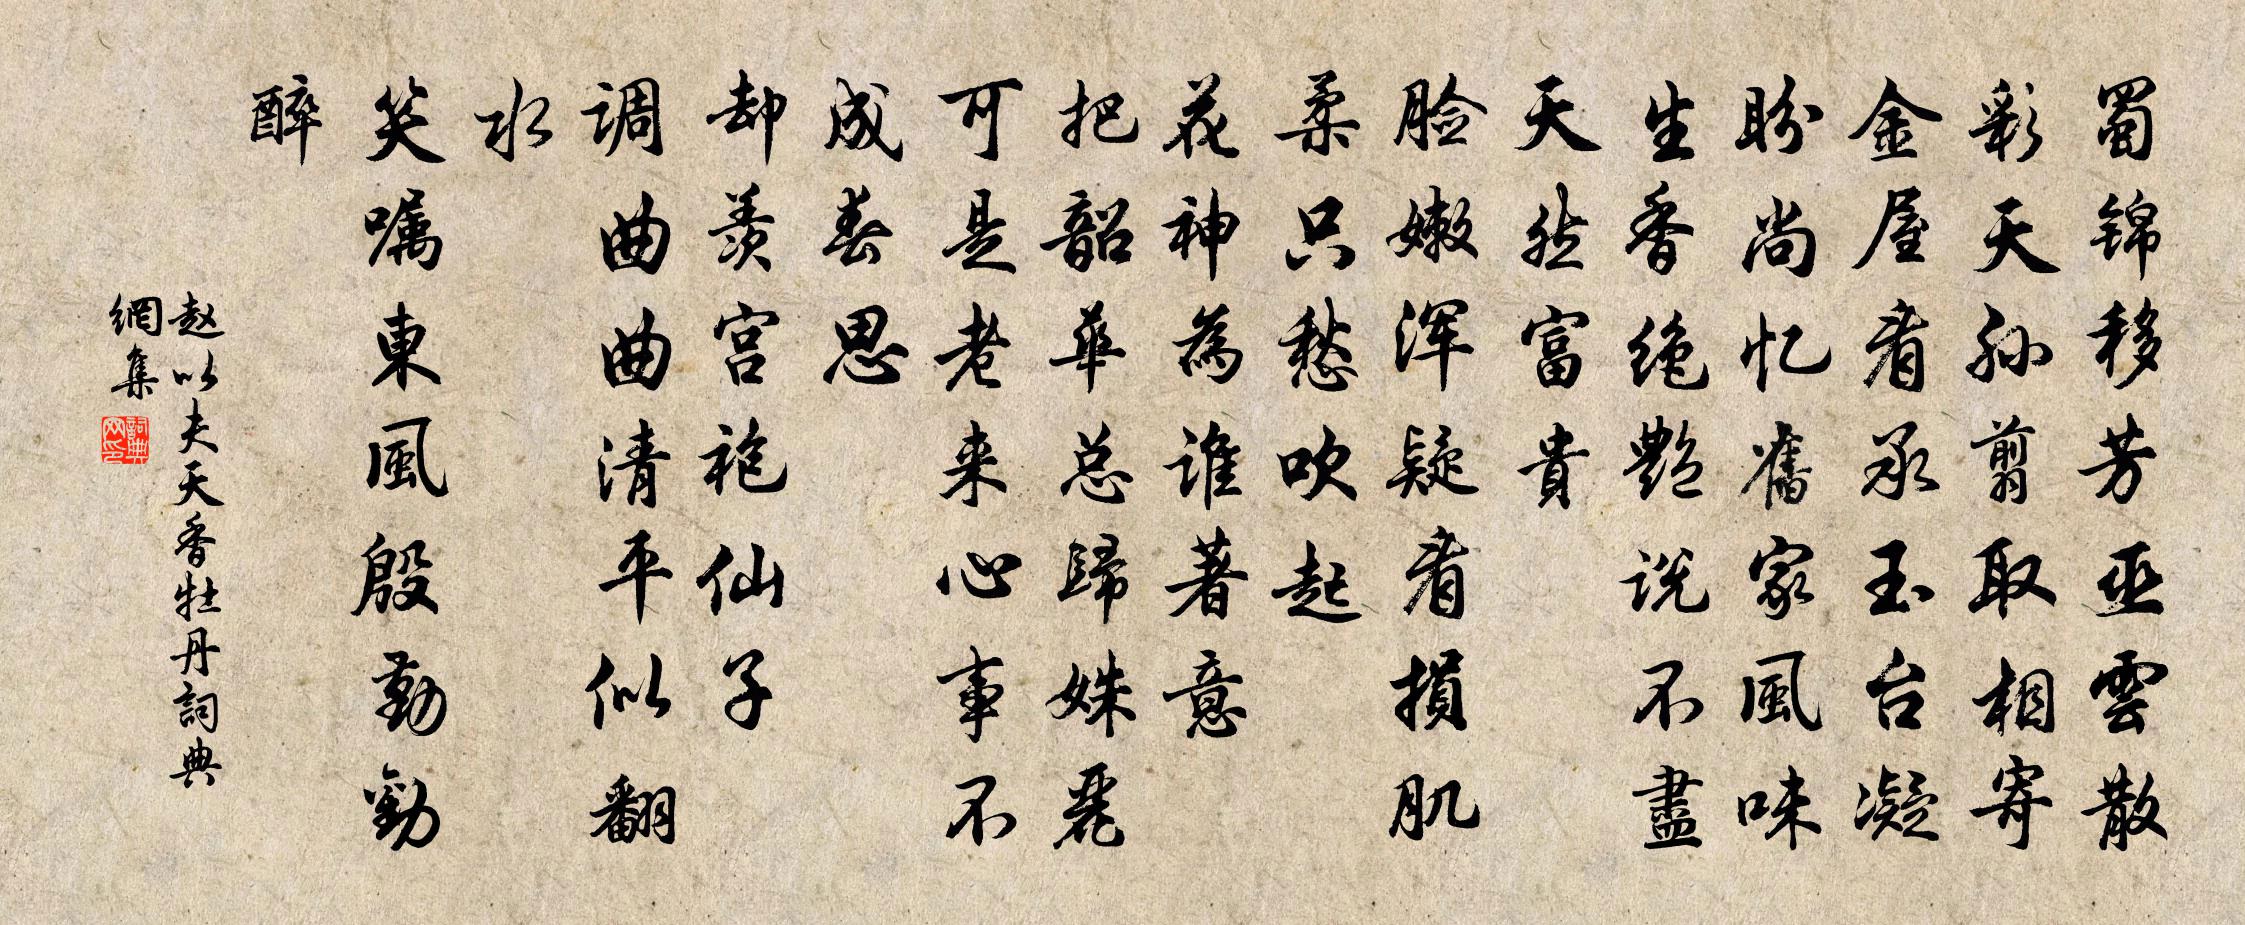 蜀锦移芳巫雲散
彩天孙剪取相寄
金屋看承玉台凝
盼尚忆舊家風味
生香绝艷说不盡
天然富貴
脸嫩浑疑看損肌
柔只愁吹起
花神為谁著意
把韶華总歸姝麗
可是老来心事不
成春思
却羡宫袍仙子
调曲曲清平似翻
水
笑嘱東風殷勤勸
醉
赵以夫天香牡丹詞典
網集
詞典網印